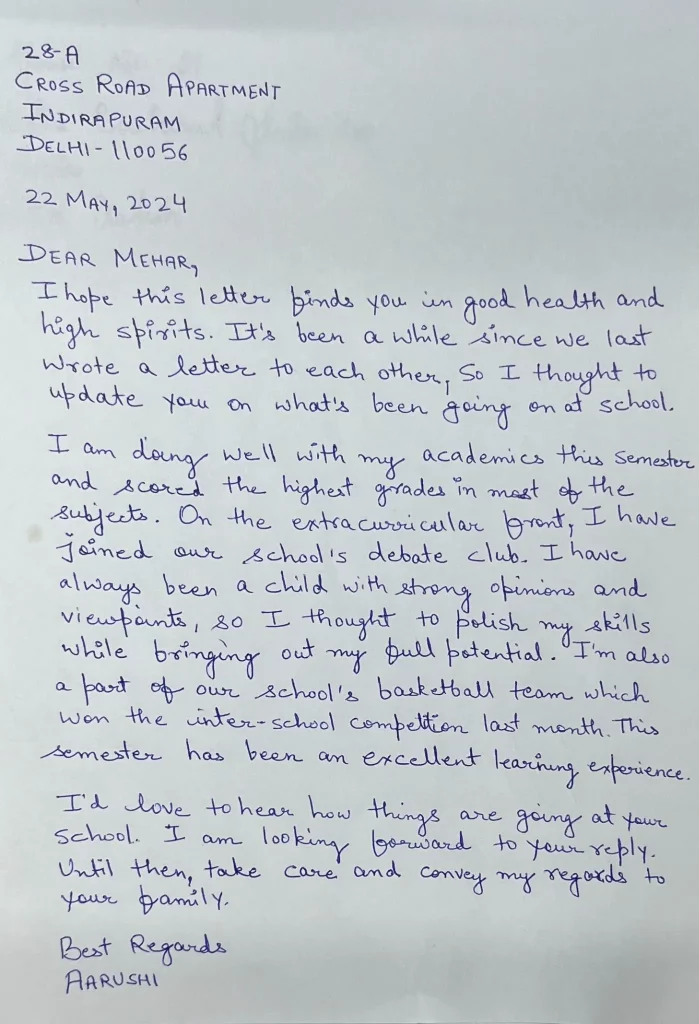 28-A
CROSS ROAD APARTMENT
INDIRAPURAM
DELHI-110056
22 MAY, 2024
DEAR MEHAR,
I hope this letter finds you in good health and
high spirits. It's been a while since we last
wrote a letter to each other, So I thought to
update you on what's been going on at school.
I am doing well with my academics this semester
and scored the highest grades in most of the
subjects. On the extracurricular front, I have
joined our school's debate club. I have
always been a child with strong opinions and
viewpoints, so I thought to polish my skills
while bringing out my full potential. I'm also
a part of our school's basketball team which
won the inter-school compettion last month. This
semester has been an excellent learning experience.
I'd love to hear how things are going at your
school. I am looking forward to your reply.
Until then, take care and convey my regards to
your family.
Best Regards
AARUSHI